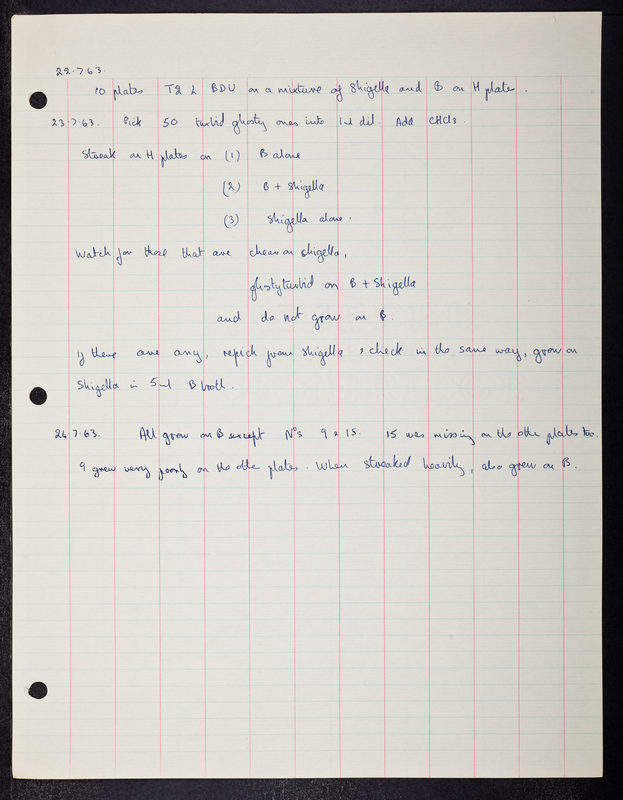 22.7.63.
10 plates T2 L BDU on a mixture of Shigella and B on H plates.
23.7.63. Pick 50 turbid ghosty ones into 1ml dil. Add CHCl3.
Streak on H plates on (1) B alone
(2) B + Shigella
(3) Shigella alone.
Watch for those that are clear on shigella,
ghostyturbid on B + Shigella
and do not grow on B.
If there are any, repick from Shigella, check in the same way, grow on
Shigella in 5ml B broth.
24.7.63. All grow on B except Nos 9 & 15. 15 was missing on the othe plates too.
9 grew very poorly on the othe plates. When streaked heavily, also grew on B.